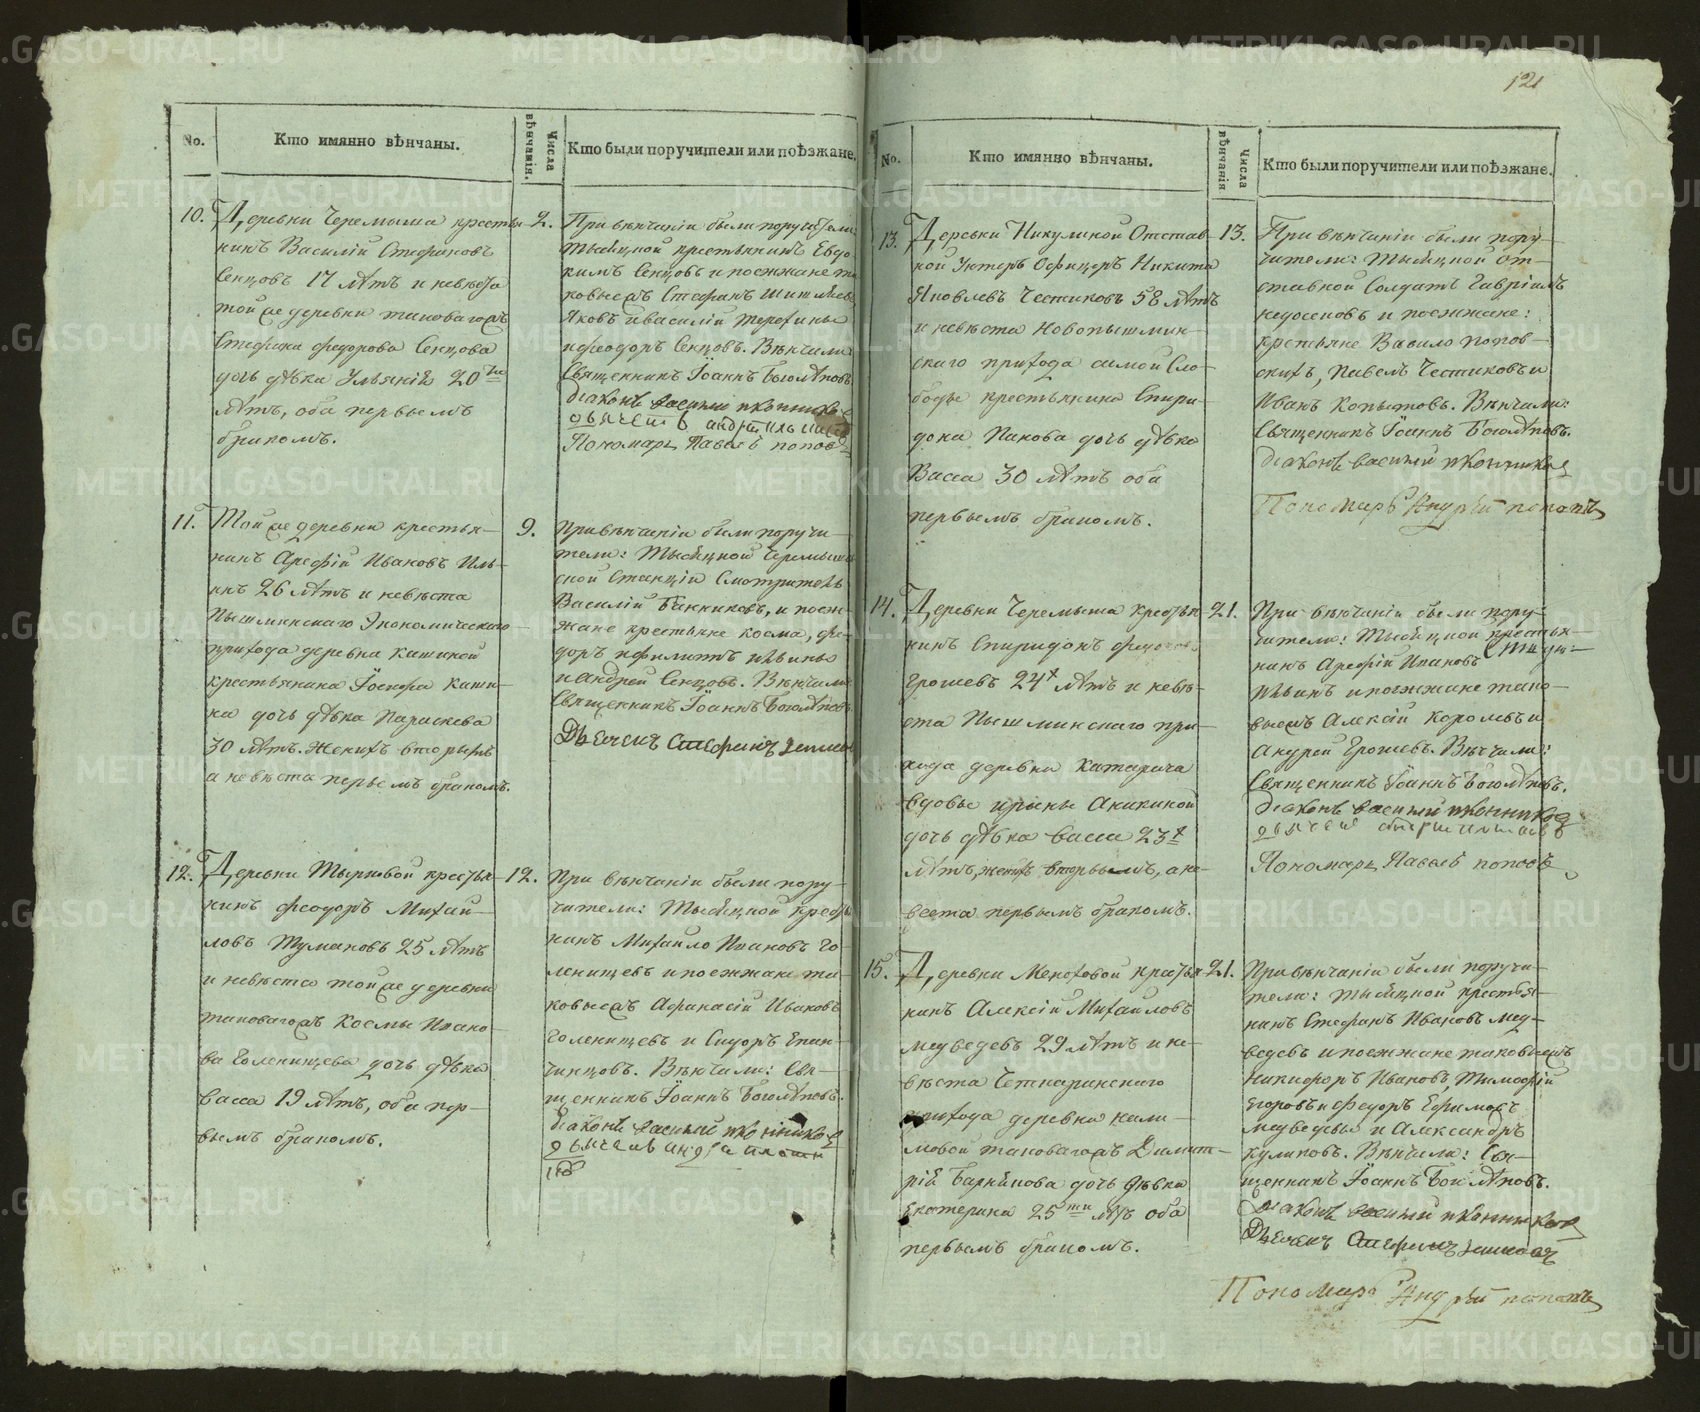 121
No.
Кто имянно вѣнчаны.
Числа вѣнчанія.
Кто были поручители или поѣзжане.
10.
Деревни Черемыша крестья-
нинъ Василій Стефановъ
Сенцовъ 17 лѣтъ и невѣста
той же деревни таковагожъ
Стефана Федорова Сенцова
дочь дѣвка Ульянія 20ти
лѣтъ, оба первымъ
бракомъ.
2.
При вѣнчаніи были поручители
тысяцкой крестьянинъ Евдо-
кимъ Сенцовъ и поезжане та-
ковыежъ Стефанъ
Яковъ и Василій
и Феодоръ Сенцовъ. Вѣнчали
Священникъ Іоаннъ Боголѣповъ
діаконъ василий иконников
Пономарь Павелъ поповъ
11.
Той же деревни крестья-
нинъ Арефій Ивановъ Иль-
инъ 26 лѣтъ и невѣста
Пышминскаго Экономическаго
прихода деревни
крестьянина Іосифа
на дочь дѣвка Параскева
30 лѣтъ. Женихъ вторымъ
а невѣста первымъ бракомъ.
9.
При вѣнчаніи были поручи-
тели: Тысяцкой Черемыш-
ской Станціи Смотритель
Василій Банниковъ, и поез-
жане крестьяне Косма, Фе-
доръ и Филиппъ Ильины
и Андрей Сенцовъ. Вѣнчали
Священникъ Іоаннъ Боголѣповъ.
Дьячекъ Стефанъ
12.
Деревни Тырковой крестья-
нинъ Феодоръ Михай-
ловъ Тумановъ 25 лѣтъ
и невѣста той же деревни
таковагожъ Космы Ивано-
ва Голенищева дочь дѣвка
Васса 19 лѣтъ, оба пер-
вымъ бракомъ.
12.
При вѣнчаніи были пору-
чители: Тысяцкой кресть-
нинъ Михайло Ивановъ Го-
ленищевъ и поезжане та-
ковыежъ Афанасій Ивановъ
Голенищевъ и Сидоръ Епан-
чинцовъ. Вѣнчали: Свя-
щенникъ Іоаннъ Боголѣповъ.
діаконъ василий иконников
No.
Кто имянно вѣнчаны.
Числа вѣнчанія
Кто были поручители или поѣзжане.
13.
Деревни Никулиной Отстав-
ной Унтеръ Офицеръ Никита
Яковлевъ Чистяковъ 58 лѣтъ
и невѣста Новопышмин-
скаго прихода самой Сло-
боды крестьянина Спири-
дона Панова дочь дѣвка
Васса 30 лѣтъ оба
первымъ бракомъ.
13.
При вѣнчаніи были пору-
чители: Тысяцкой от-
ставной Солдатъ Гавріилъ
и поезжане:
крестьяне Вавило Попов-
скихъ, Павелъ Чистяковъ и
Иванъ Копытовъ. Вѣнчали:
Священникъ Іоаннъ Боголѣповъ.
діаконъ василий иконников
Пономарь Андрѣй поповъ
14.
Деревни Черемыша крестья-
нинъ Спиридонъ
Ерошевъ 24х лѣтъ и невѣ-
ста Пышминскаго при-
хода деревни Катарача
вдовы Ирины Аникиной
дочь дѣвка Васса 23х
лѣтъ, женихъ вторымъ, а не-
вѣста первымъ бракомъ.
21.
При вѣнчаніи были пору-
чители: Тысяцкой крестья-
нинъ Арефій Ивановъ
Ильинъ и поезжане тако-
выежъ Алексѣй Королевъ и
Андрей Ерошевъ. Вѣнчали:
Священникъ Іоаннъ Боголѣповъ.
діаконъ василий иконников
Пономарь Павелъ поповъ
15.
Деревни Мехоховой крестья-
нинъ Алексій Михайловъ
Медведевъ 29 лѣтъ и не-
вѣста Четкаринскаго
прихода деревни Кали-
мовой таковагожъ Димит-
рія дочь дѣвка
Екатерина 25ти лѣтъ оба
первымъ бракомъ.
21.
При вѣнчаніи были поручи-
тели: тысяцкой крестья-
нинъ Стефанъ Ивановъ Мед-
ведевъ и поезжане таковыежъ
Никифоръ Ивановъ, Тимофѣй
Егоровъ и Федоръ Ефимовъ
Медведевы и Александръ
Куликовъ. Вѣнчали: Свя-
щенникъ Іоаннъ Боголѣповъ.
Діаконъ василий иконников
Дьячекъ Стефанъ
Пономарь Андрѣй поповъ
METRIKI.GASO-URAL.RU